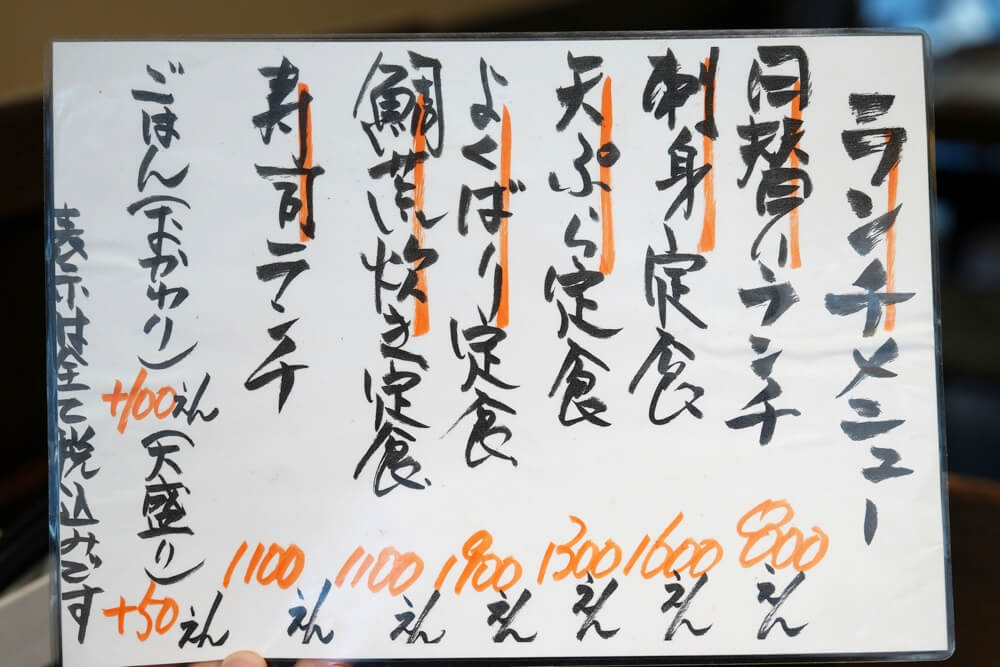 ランチメニュー
日替りランチ 800えん
刺身定食 1600えん
天ぷら定食 1300えん
よくばり定食 1900えん
鯛荒炊き定食 1100えん
寿司ランチ 1100えん
ごはん(おかわり)+100えん(大盛り)+50えん
表示は全て税込みです